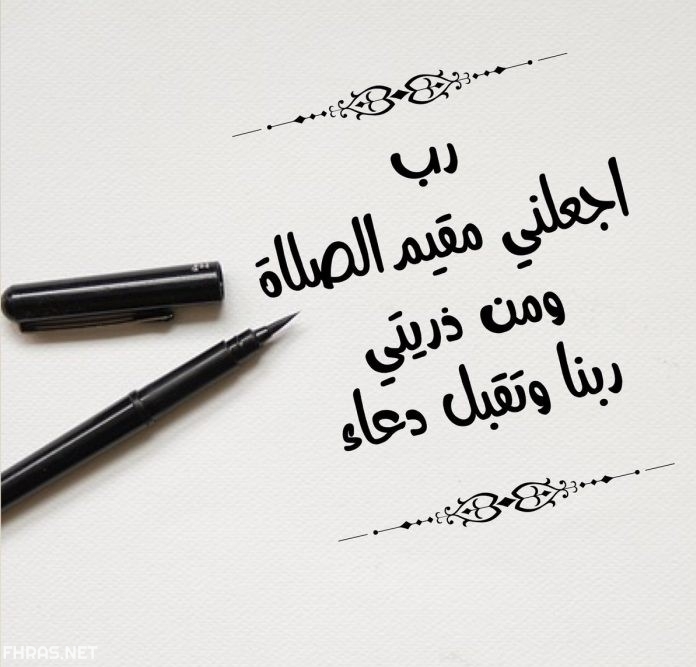 رب
اجعلني مقيم الصلاة
ومن ذريتي
ربنا وتقبل دعاء
FHRAS.NET